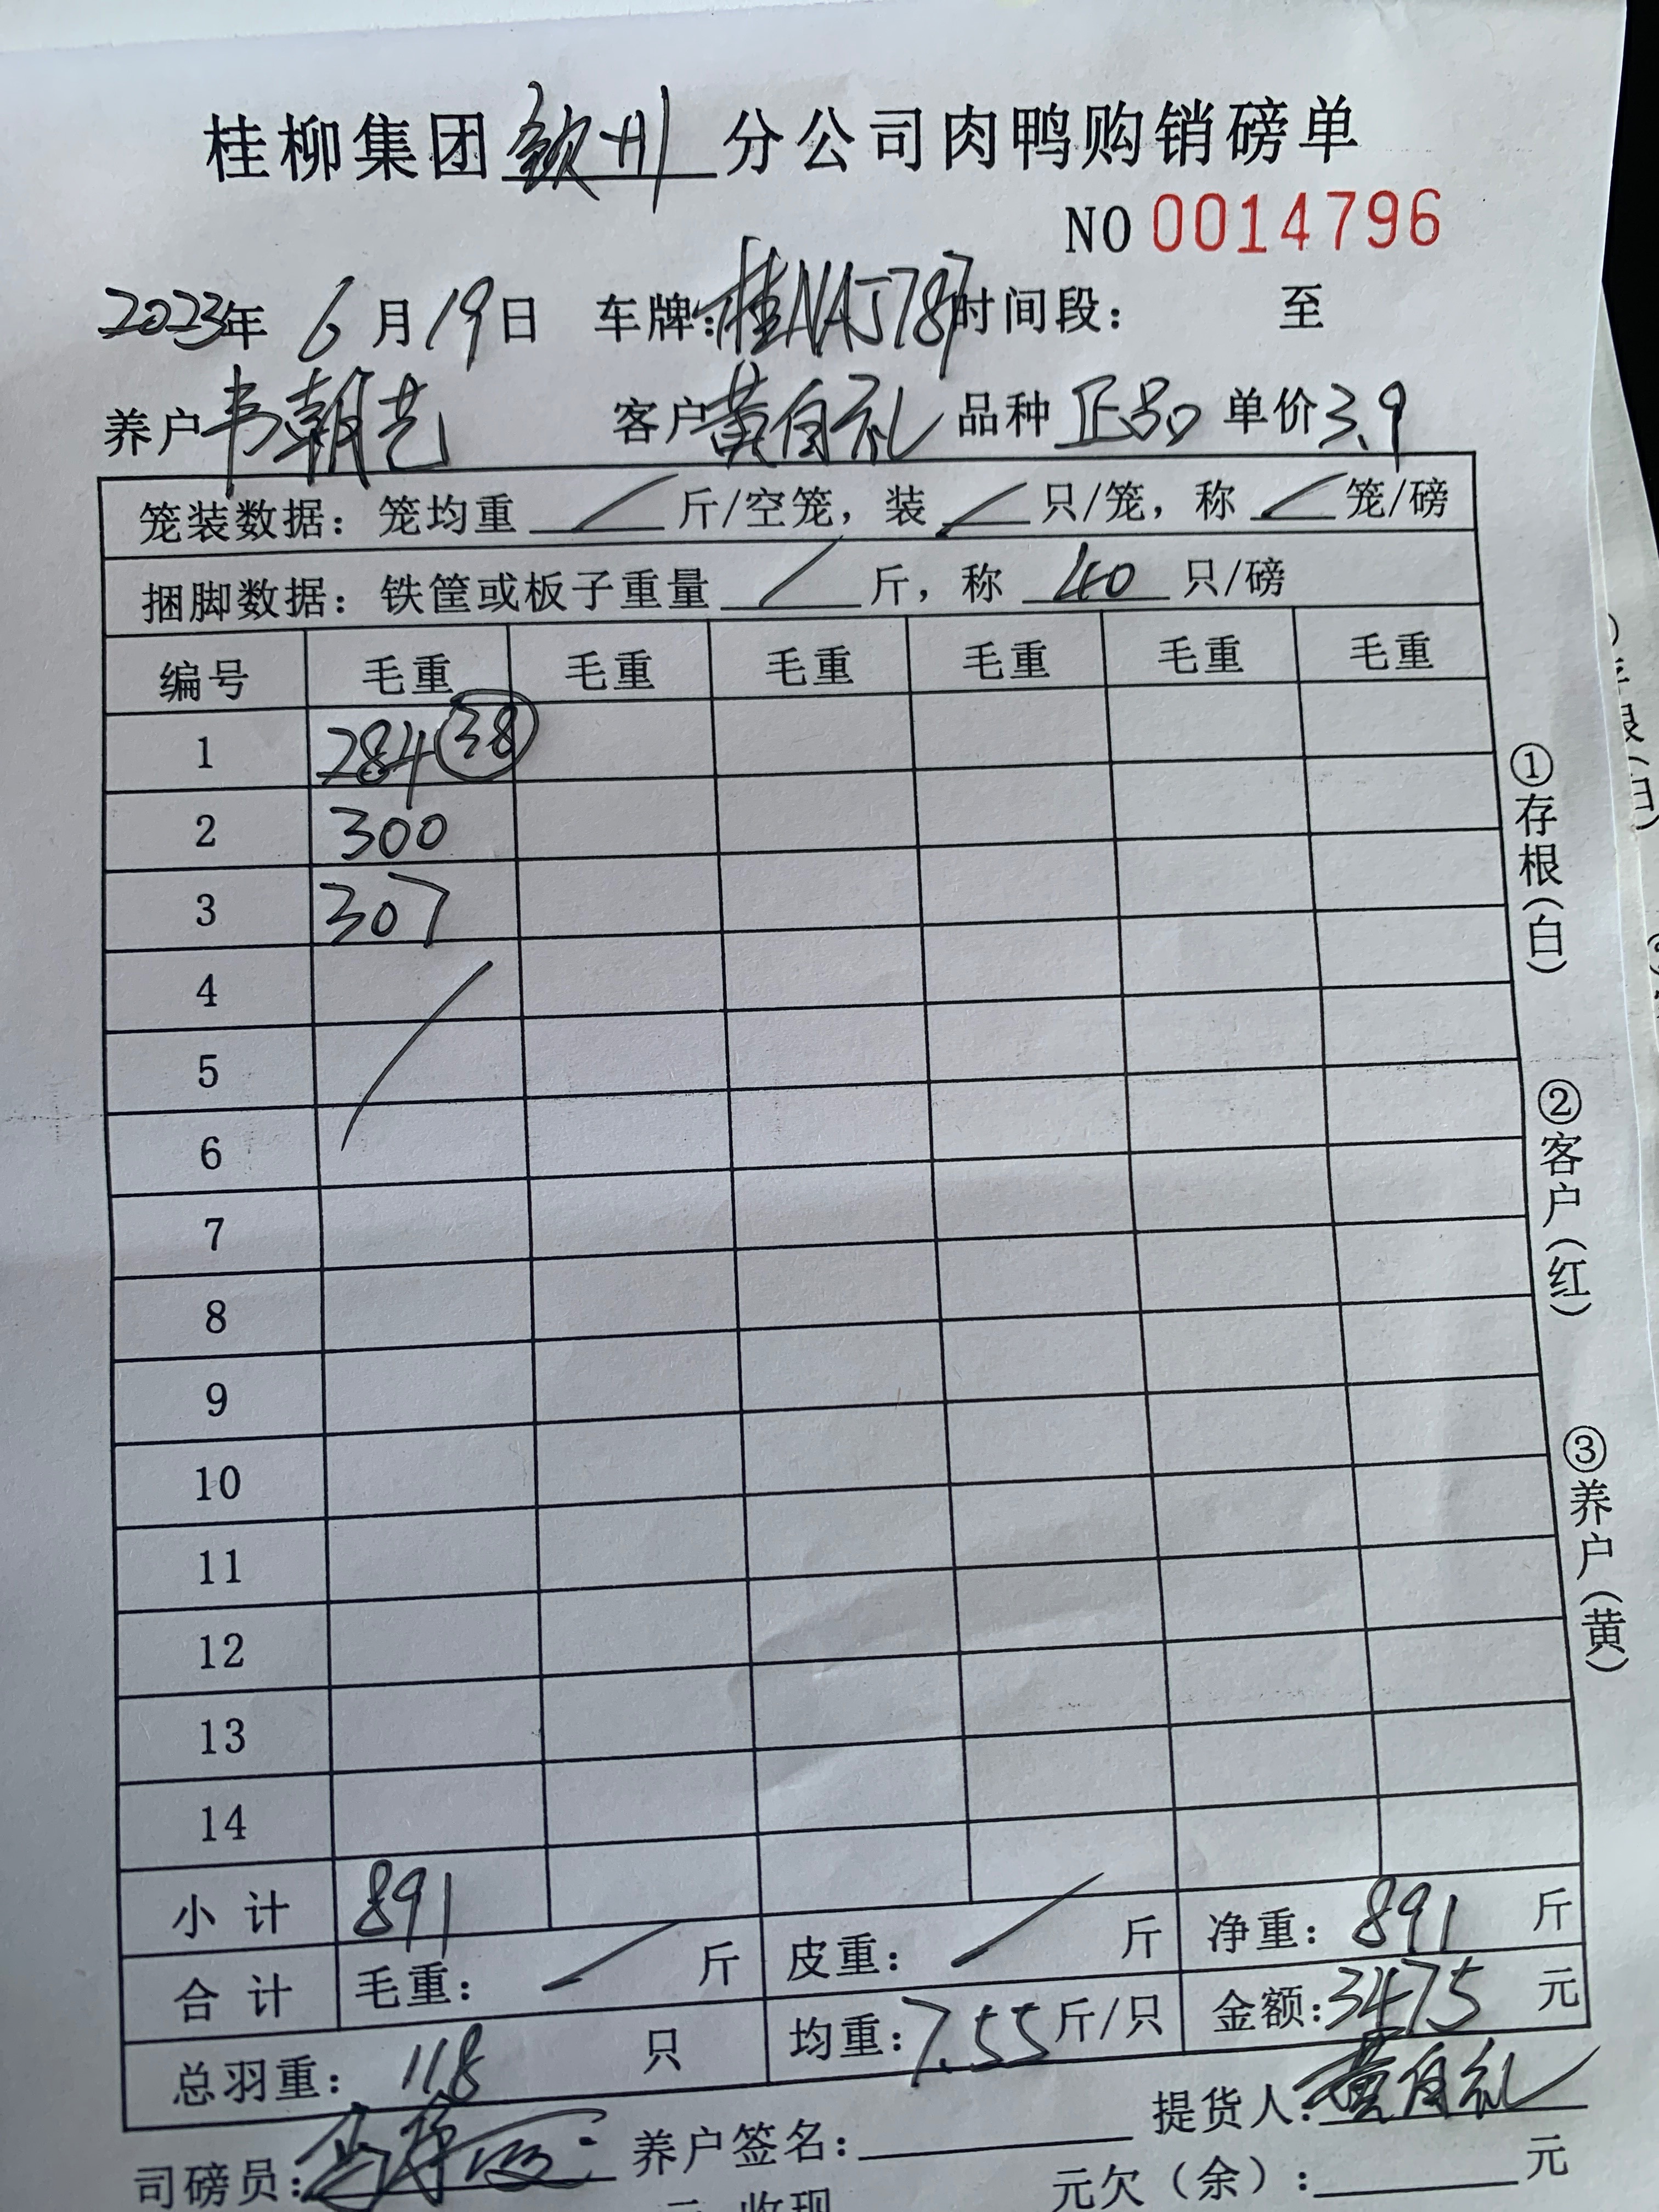 桂柳集团钦州分公司肉鸭购销磅单
NO 0014796
2023年 6月19日 车牌:桂NAJ787时间段: 至
养户韦朝艺 客户黄自礼 品种正品 单价3.9
笼装数据: 笼均重 / 斤/空笼, 装 / 只/笼, 称 / 笼/磅
捆脚数据: 铁筐或板子重量 / 斤, 称 40 只/磅
编号 毛重 毛重 毛重 毛重 毛重 毛重
1 284 38
2 300
3 307
4
5
6
7
8
9
10
11
12
13
14
小计 891
合计 毛重: / 斤 皮重: / 斤 净重: 891 斤
总羽重: 118 只 均重: 7.55斤/只 金额:3475 元
司磅员: 养户签名: 提货人:黄自礼
元 收现 元欠(余): 元
①存根(白)
②客户(红)
③养户(黄)